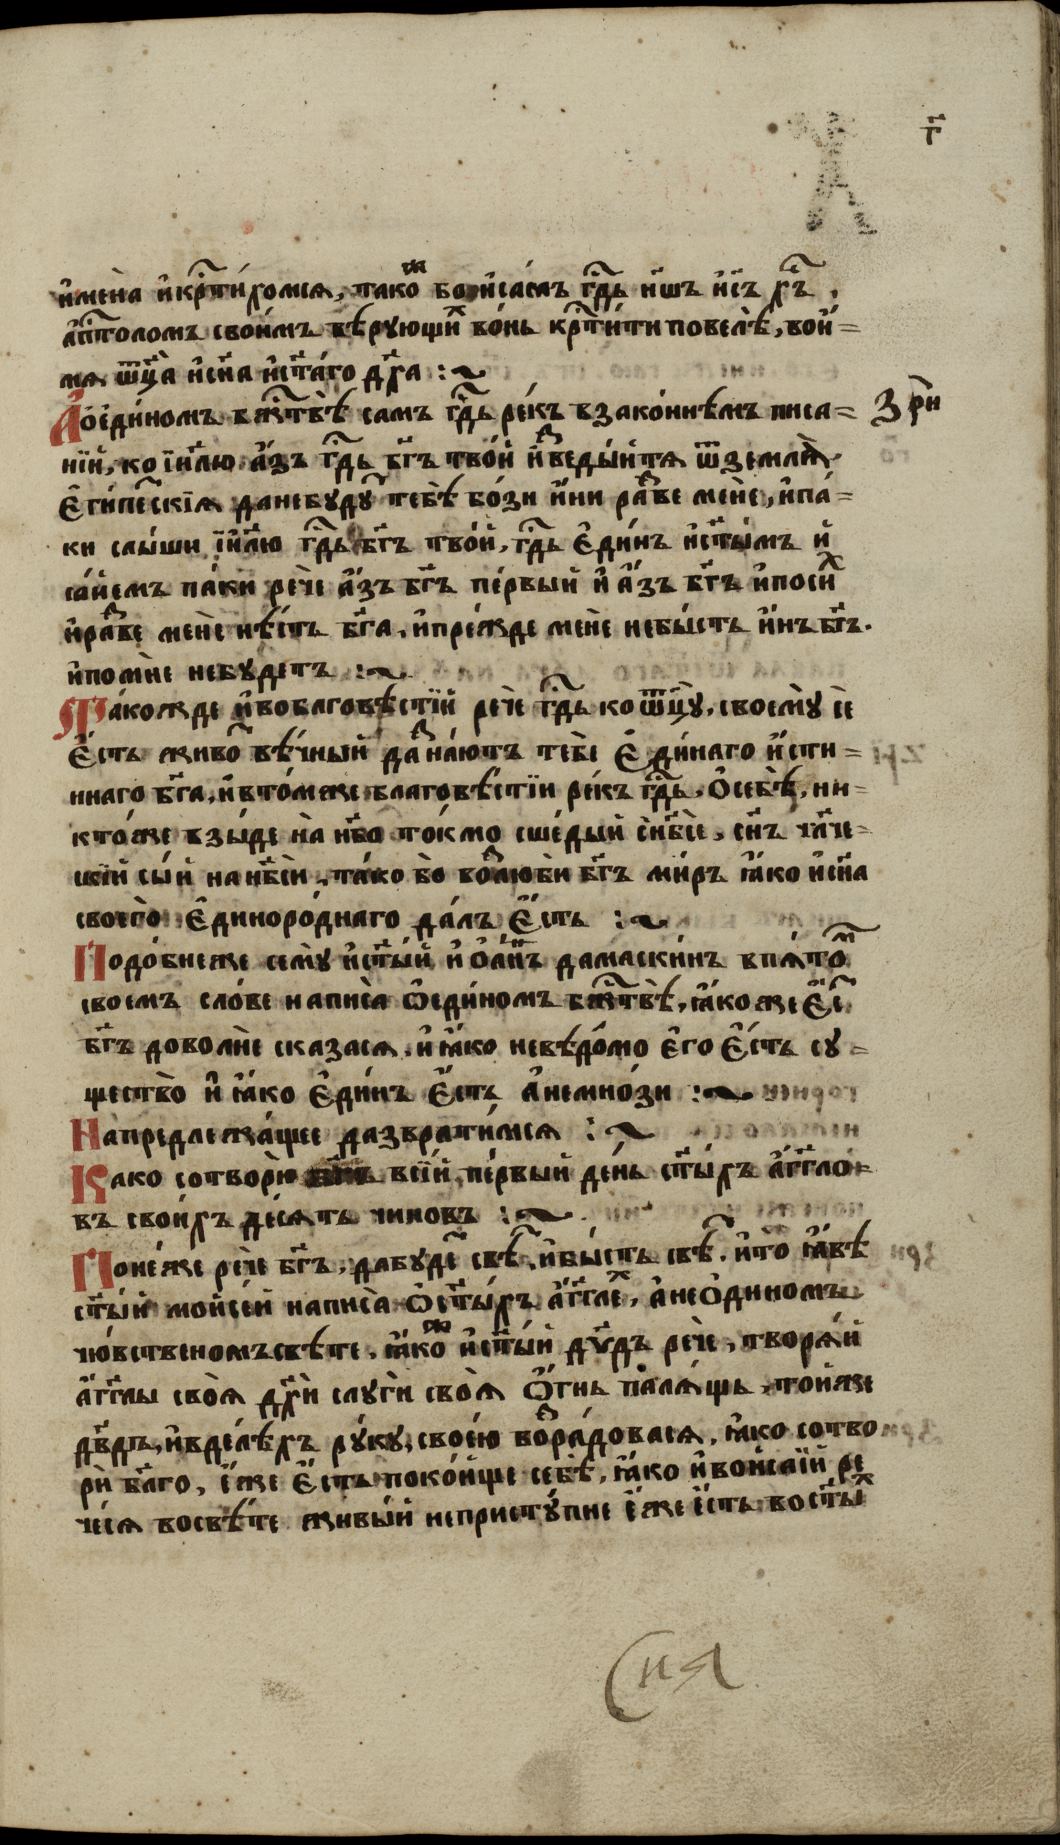 г҃
и҆мѐна и҆кр҇ти́хомсѧ, тако бо и҆са́мъ гд҇ь н҃шъ и҆с҃ъ х҇ъ,
ап҇толомъ свои́мъ вѣ́рующиⷯ во́нь кр҇ти́ти повелѣ̀, вои҆=
мѧ ѿц҃а̀ и҆сн҃а и҆ст҃а́го дх҃а :~
А҆ое҆ди́номъ бж҇твѣ̀ самъ гд҇ь ре́къ взако́ннѣмъ писа=
Зри̑
нїй, ко і҆и҃лю а҆́зъ гд҇ь бг҃ъ тво́й и҆ⷥведы́йтѧ ѿземлѧ̀
Е҆ги́пе҇скїѧ данебуду҇ тебѣ̀ бо́зи и҆́ни ра́ⷥве менѐ, и҆па́=
ки слы́ши і҆и҃лю гд҇ь бг҃ъ тво́й, гд҇ь Е҆ди́нъ и҆ст҃ы́мъ И
са́йемъ па́ки рече а҆́зъ бг҃ъ пе́рвый и҆ а҆́зъ бг҃ъ и҆посиⷯ
и҆ра́ⷥве менѐ нѣ́сть бг҃а, и҆пре́жде менѐ небы́сть и҆́нъ бг҃ъ.
и҆помнѐ небу́детъ :~
Та́кожде и҆воблаговѣ́стїй речѐ гд҇ь коѿц҃у̀, своемꙋ̀ се
Е҆́сть живо҇ вѣ́чный даⷥна́ютъ тебѐ Е҆ди́наго и҆́сти=
ннаго бг҃а, и҆вто́мже благовѣ́стїи ре́къ гд҇ь, О҆себѣ̀, ни=
кто́же взы́де на̀ нб҃о то́кмо сше́дый снб҃се, сн҃ъ чл҃че=
скїй сы́й на нб҃си, та́ко бо воⷥлюби бг҃ъ ми́ръ ꙗ҆́ко и҆сн҃а
своего̀ Е҆диноро́днаго да́лъ Е҆́сть :~
Подо́бнеже семꙋ̀ и҆ст҃ы́й и҆О҆а́ннъ дамаски́нъ впѧ́тоⷨ
своемъ сло́ве написа̀ О҆е҆ди́номъ бж҇твѣ̀, ꙗ҆́коже Е҆́с҇
бг҃ъ доволнѐ сказасѧ. и҆ꙗ҆́ко невѣ́домо е҆го Е҆́сть су=
щество̀ и҆ ꙗ҆́ко Е҆ди́нъ Е҆́сть а҆немно́зи :~
Напредлежа́щее дазврати́мсѧ :~
Како сотворѝ всїй, пе́рвый де́нь ст҃ы́хъ а҆́гг҃ло=
въ свои́хъ де́сѧть чиновъ :~
Поне́же речѐ бг҃ъ, дабуде҇ свѣ҇, и҆бы́сть свѣ҇. и҆то̀ ꙗ҆́вѣ
ст҃ы́й мойсе́й написа̀ О҆ст҃ы́хъ а҆́гг҃леⷯ, а҆неО҆диномъ
чювственомъсвѣ́те, ꙗ҆́ко и҆ст҃ы́й дв҃дъ речѐ, творѧ́й
а҆́гг҃лы своѧ̀ дх҃и слугѝ своѧ̀ О҆́гнь палѧ́щь, то́йже
дв҃дъ, и҆вделѣ́хъ ру́ку, своею воⷥра́довасѧ, ꙗ҆́ко сотво
рѝ бл҃го, е҆́же Е҆́сть поко́йще себѣ̀, ꙗ҆́ко и҆вои҆са́їй ре
чесѧ восвѣ́те живы́й непристу́пне е҆́же е҆́сть вост҃ыⷯ